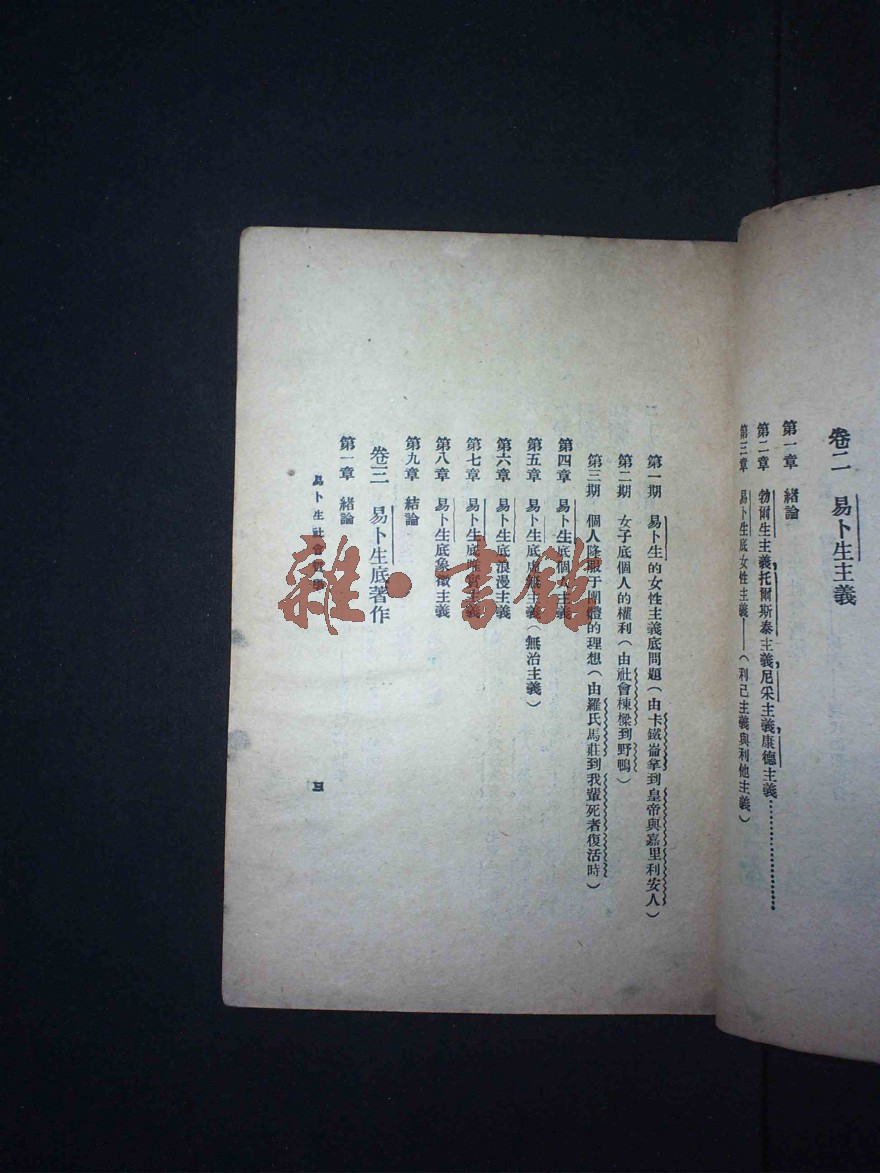 卷二　易卜生主義
第一章　緒論
第二章　勃爾生主義,托爾斯泰主義,尼采主義,康德主義…………
第三章　易卜生底女性主義——(利己主義與利他主義)
第一期　易卜生的女性主義底問題(由卡鐵崙拿到皇帝與嘉里利安人)
第二期　女子底個人的權利(由社會棟樑到野鴨)
第三期　個人隆服于團體的理想(由羅氏馬莊到我輩死者復活時)
第四章　易卜生底個人主義
第五章　易卜生底虛無主義(無治主義)
第六章　易卜生底浪漫主義
第七章　易卜生底唯實主義
第八章　易卜生底象徵主義
第九章　結論
卷三　易卜生底著作
第一章　緒論
易卜生社會哲學
三
雜·書館